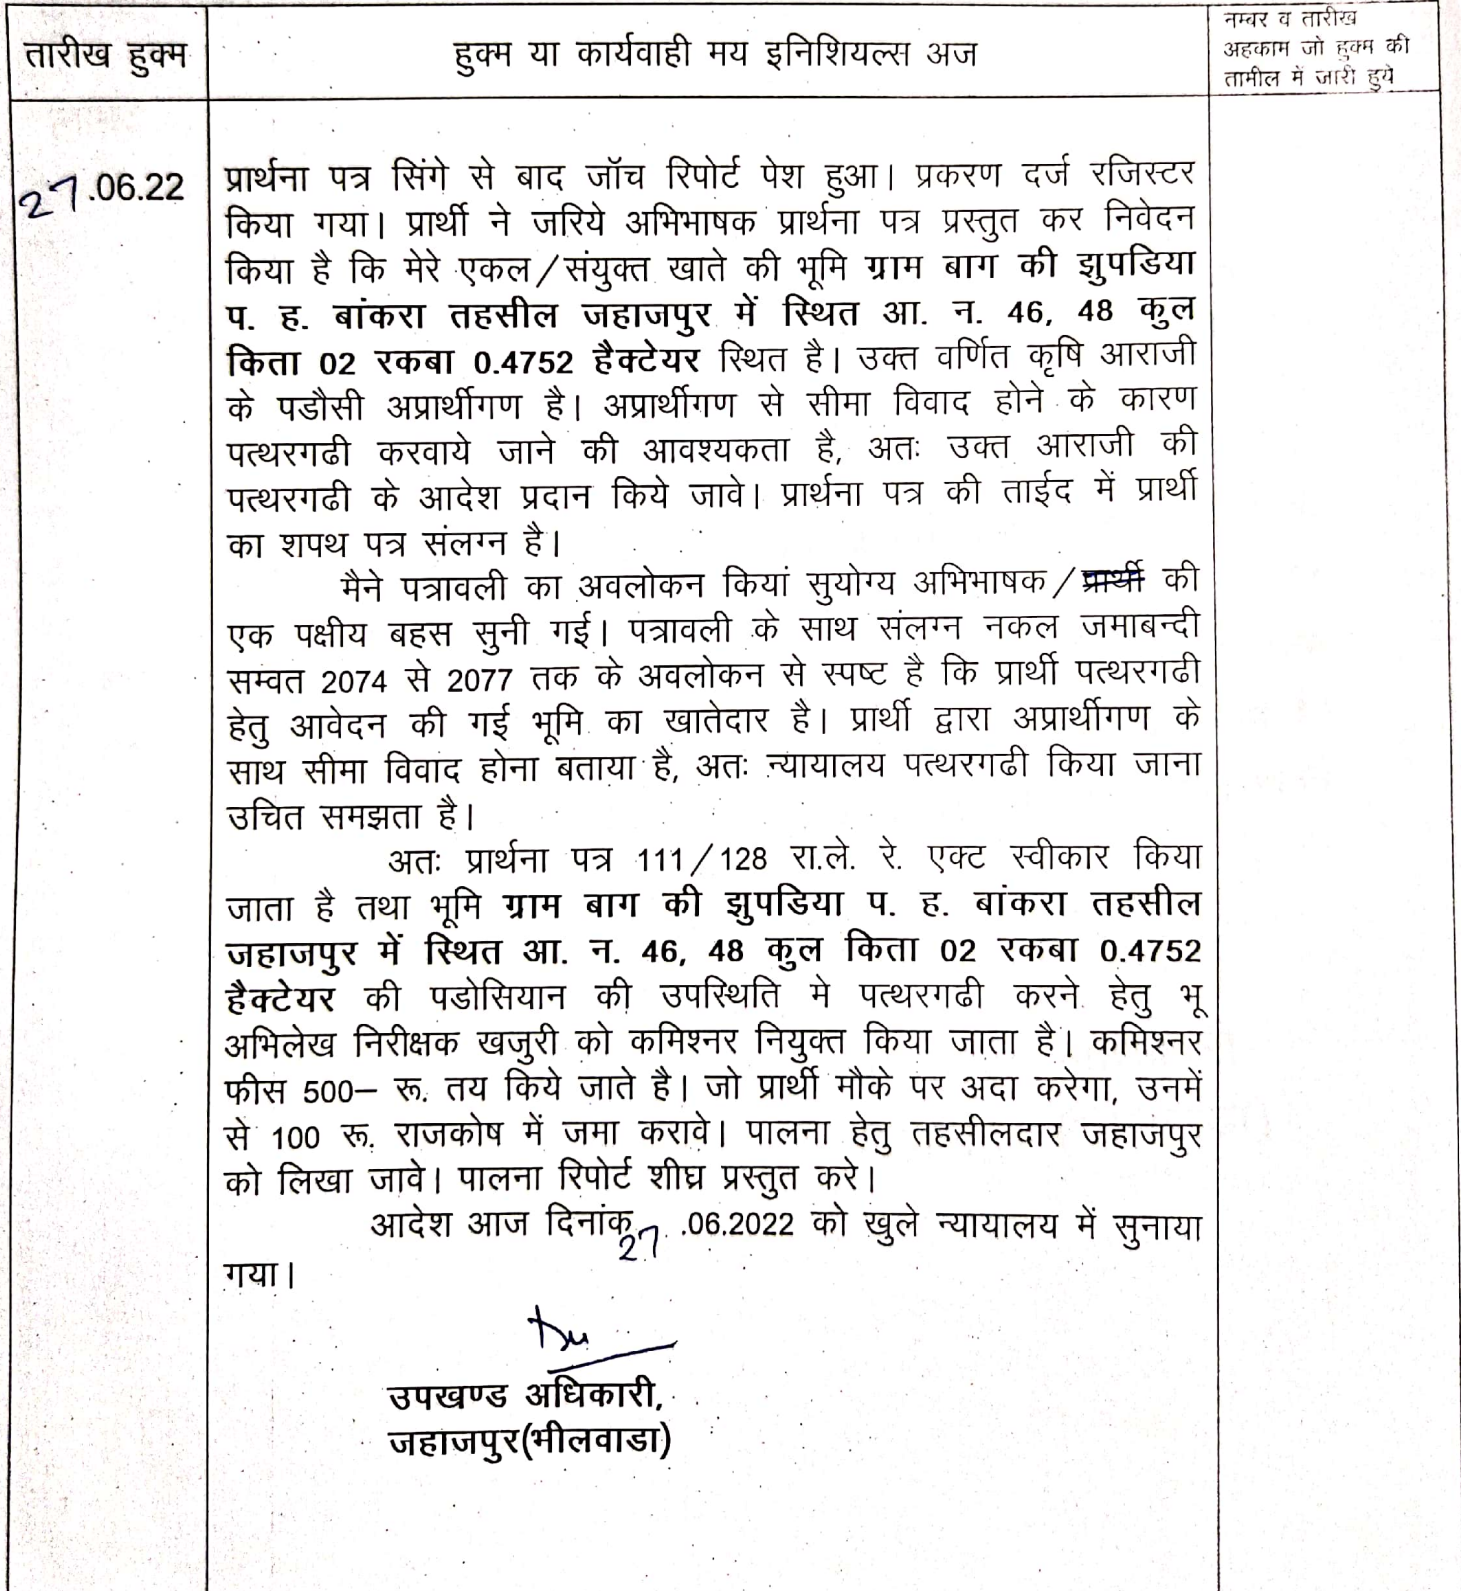 तारीख हुक्म
हुक्म या कार्यवाही मय इनिशियल्स अज
नम्बर व तारीख
अहकाम जो हुक्म की
तामील में जारी हुये
27.06.22
प्रार्थना पत्र सिंगे से बाद जॉच रिपोर्ट पेश हुआ। प्रकरण दर्ज रजिस्टर
किया गया। प्रार्थी ने जरिये अभिभाषक प्रार्थना पत्र प्रस्तुत कर निवेदन
किया है कि मेरे एकल/संयुक्त खाते की भूमि ग्राम बाग की झुपडिया
प. ह. बांकरा तहसील जहाजपुर में स्थित आ. न. 46, 48 कुल
किता 02 रकबा 0.4752 हैक्टेयर स्थित है। उक्त वर्णित कृषि आराजी
के पडौसी अप्रार्थीगण है। अप्रार्थीगण से सीमा विवाद होने के कारण
पत्थरगढी करवाये जाने की आवश्यकता है, अतः उक्त आराजी की
पत्थरगढी के आदेश प्रदान किये जावे। प्रार्थना पत्र की ताईद में प्रार्थी
का शपथ पत्र संलग्न है।
मैने पत्रावली का अवलोकन कियां सुयोग्य अभिभाषक/प्रार्थी की
एक पक्षीय बहस सुनी गई। पत्रावली के साथ संलग्न नकल जमाबन्दी
सम्वत 2074 से 2077 तक के अवलोकन से स्पष्ट है कि प्रार्थी पत्थरगढी
हेतु आवेदन की गई भूमि का खातेदार है। प्रार्थी द्वारा अप्रार्थीगण के
साथ सीमा विवाद होना बताया है, अतः न्यायालय पत्थरगढी किया जाना
उचित समझता है।
अतः प्रार्थना पत्र 111/128 रा.ले. रे. एक्ट स्वीकार किया
जाता है तथा भूमि ग्राम बाग की झुपडिया प. ह. बांकरा तहसील
जहाजपुर में स्थित आ. न. 46, 48 कुल किता 02 रकबा 0.4752
हैक्टेयर की पडोसियान की उपस्थिति मे पत्थरगढी करने हेतु भू
अभिलेख निरीक्षक खजुरी को कमिश्नर नियुक्त किया जाता है। कमिश्नर
फीस 500– रू. तय किये जाते है। जो प्रार्थी मौके पर अदा करेगा, उनमें
से 100 रू. राजकोष में जमा करावे। पालना हेतु तहसीलदार जहाजपुर
को लिखा जावे। पालना रिपोर्ट शीघ्र प्रस्तुत करे।
आदेश आज दिनांक 27.06.2022 को खुले न्यायालय में सुनाया
गया।
उपखण्ड अधिकारी,
जहाजपुर(भीलवाडा)